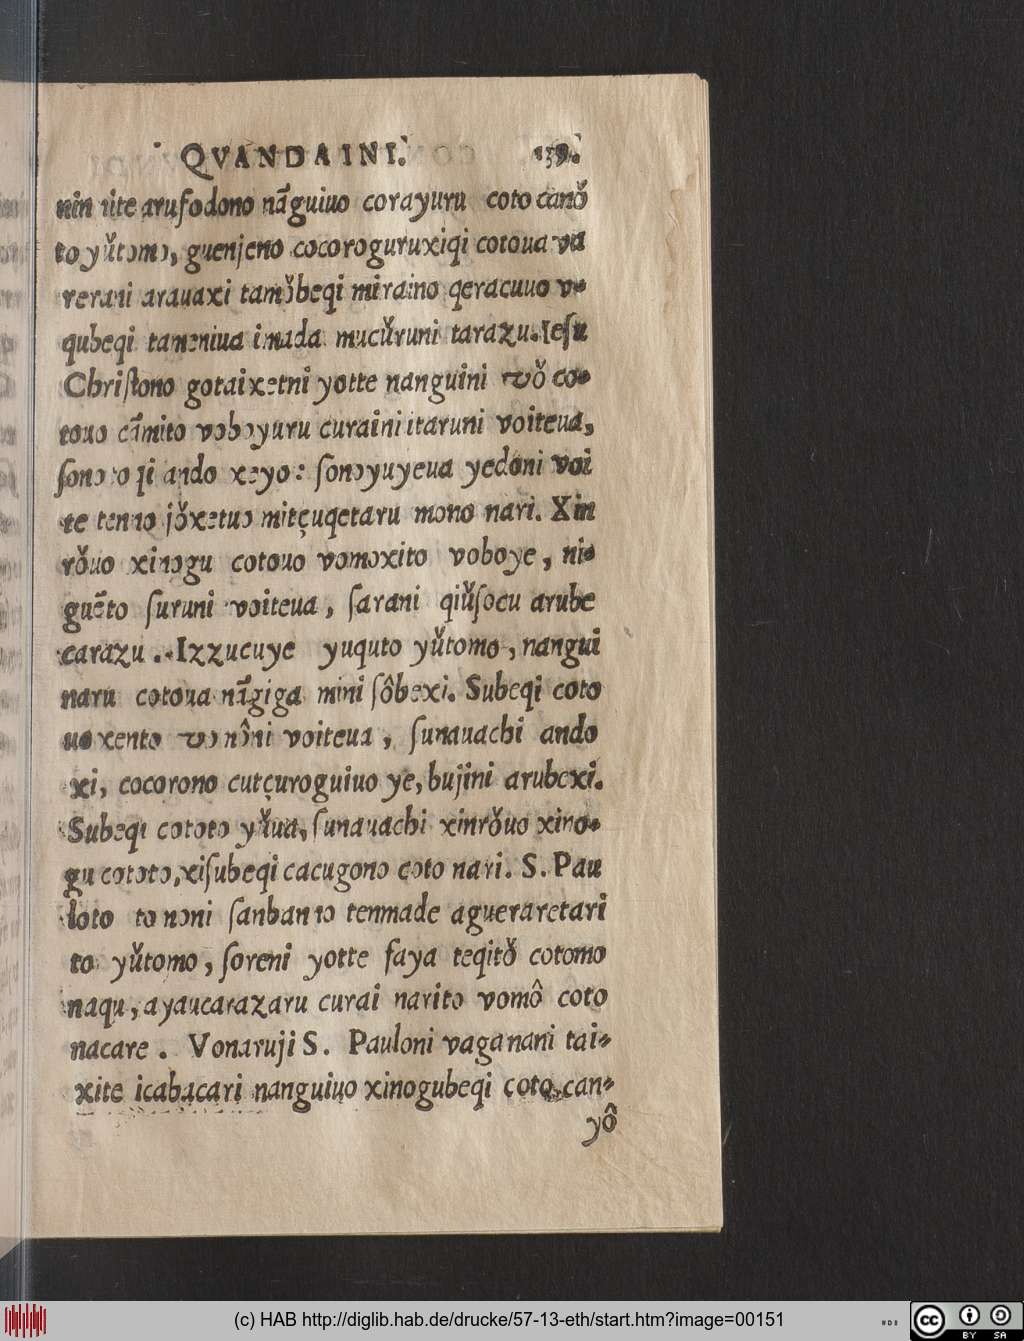 QVANDAINI. 139.
nin ite arufodono nãguiuo corayuru coto canǒ
to yǔtomo, guenjeno cocoroguruxiqi cotoua va
rerani arauaxi tamǒbeqi miraino qeracuuo v-
qubeqi tameniua imada mucǔruni tarazu. Iesu
Chriſtono gotaixetni yotte nanguini vǒ co-
touo cãmito voboyuru curaini itaruni voiteua,
ſono to qi ando xeyo: ſonoyuyeua yedoni voi
te tenno jǒxetuo mitçuqetaru mono nari. Xin
rǒuo xinogu cotouo vomoxito voboye, ni-
guẽto ſuruni voiteua, ſarani qiǔſocu arube
carazu. Izzucuye yuquto yǔtomo, nangui
naru cotoua nãgiga mini ſôbexi. Subeqi coto
uo xento vo nôni voiteua, ſunauachi ando
xi, cocorono cutçuroguiuo ye, bujini arubexi.
Subeqi cototo yǔua, ſunauachi xinrǒuo xino-
gu cototo, xiſubeqi cacugono coto nari. S. Pau
loto to noni ſanban no tenmade agueraretari
to yǔtomo, ſoreni yotte faya teqitǒ cotomo
naqu, ayaucarazaru curai narito vomô coto
nacare. Vonaruji S. Pauloni vaganani tai-
xite icabacari nanguiuo xinogubeqi coto can-
yô
(c) HAB http://diglib.hab.de/drucke/57-13-eth/start.htm?image=00151
cc BY SA